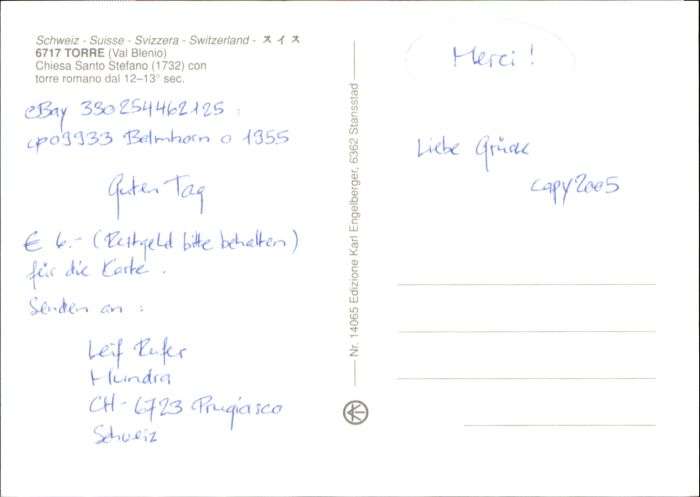 Schweiz - Suisse - Svizzera - Switzerland - スイス
6717 TORRE (Val Blenio)
Chiesa Santo Stefano (1732) con
torre romano dal 12–13° sec.
eBay 330254462125 :
cp09933 Belmhorn o 1955
Guten Tag
€ 6.- (Restgeld bitte behalten)
für die Karte.
Senden an :
Leif Rufer
Mundra
CH-6723 Prugiasco
Schweiz
Nr. 14065 Edizione Karl Engelberger, 6362 Stansstad
Merci !
Liebe Grüsse
copy2005